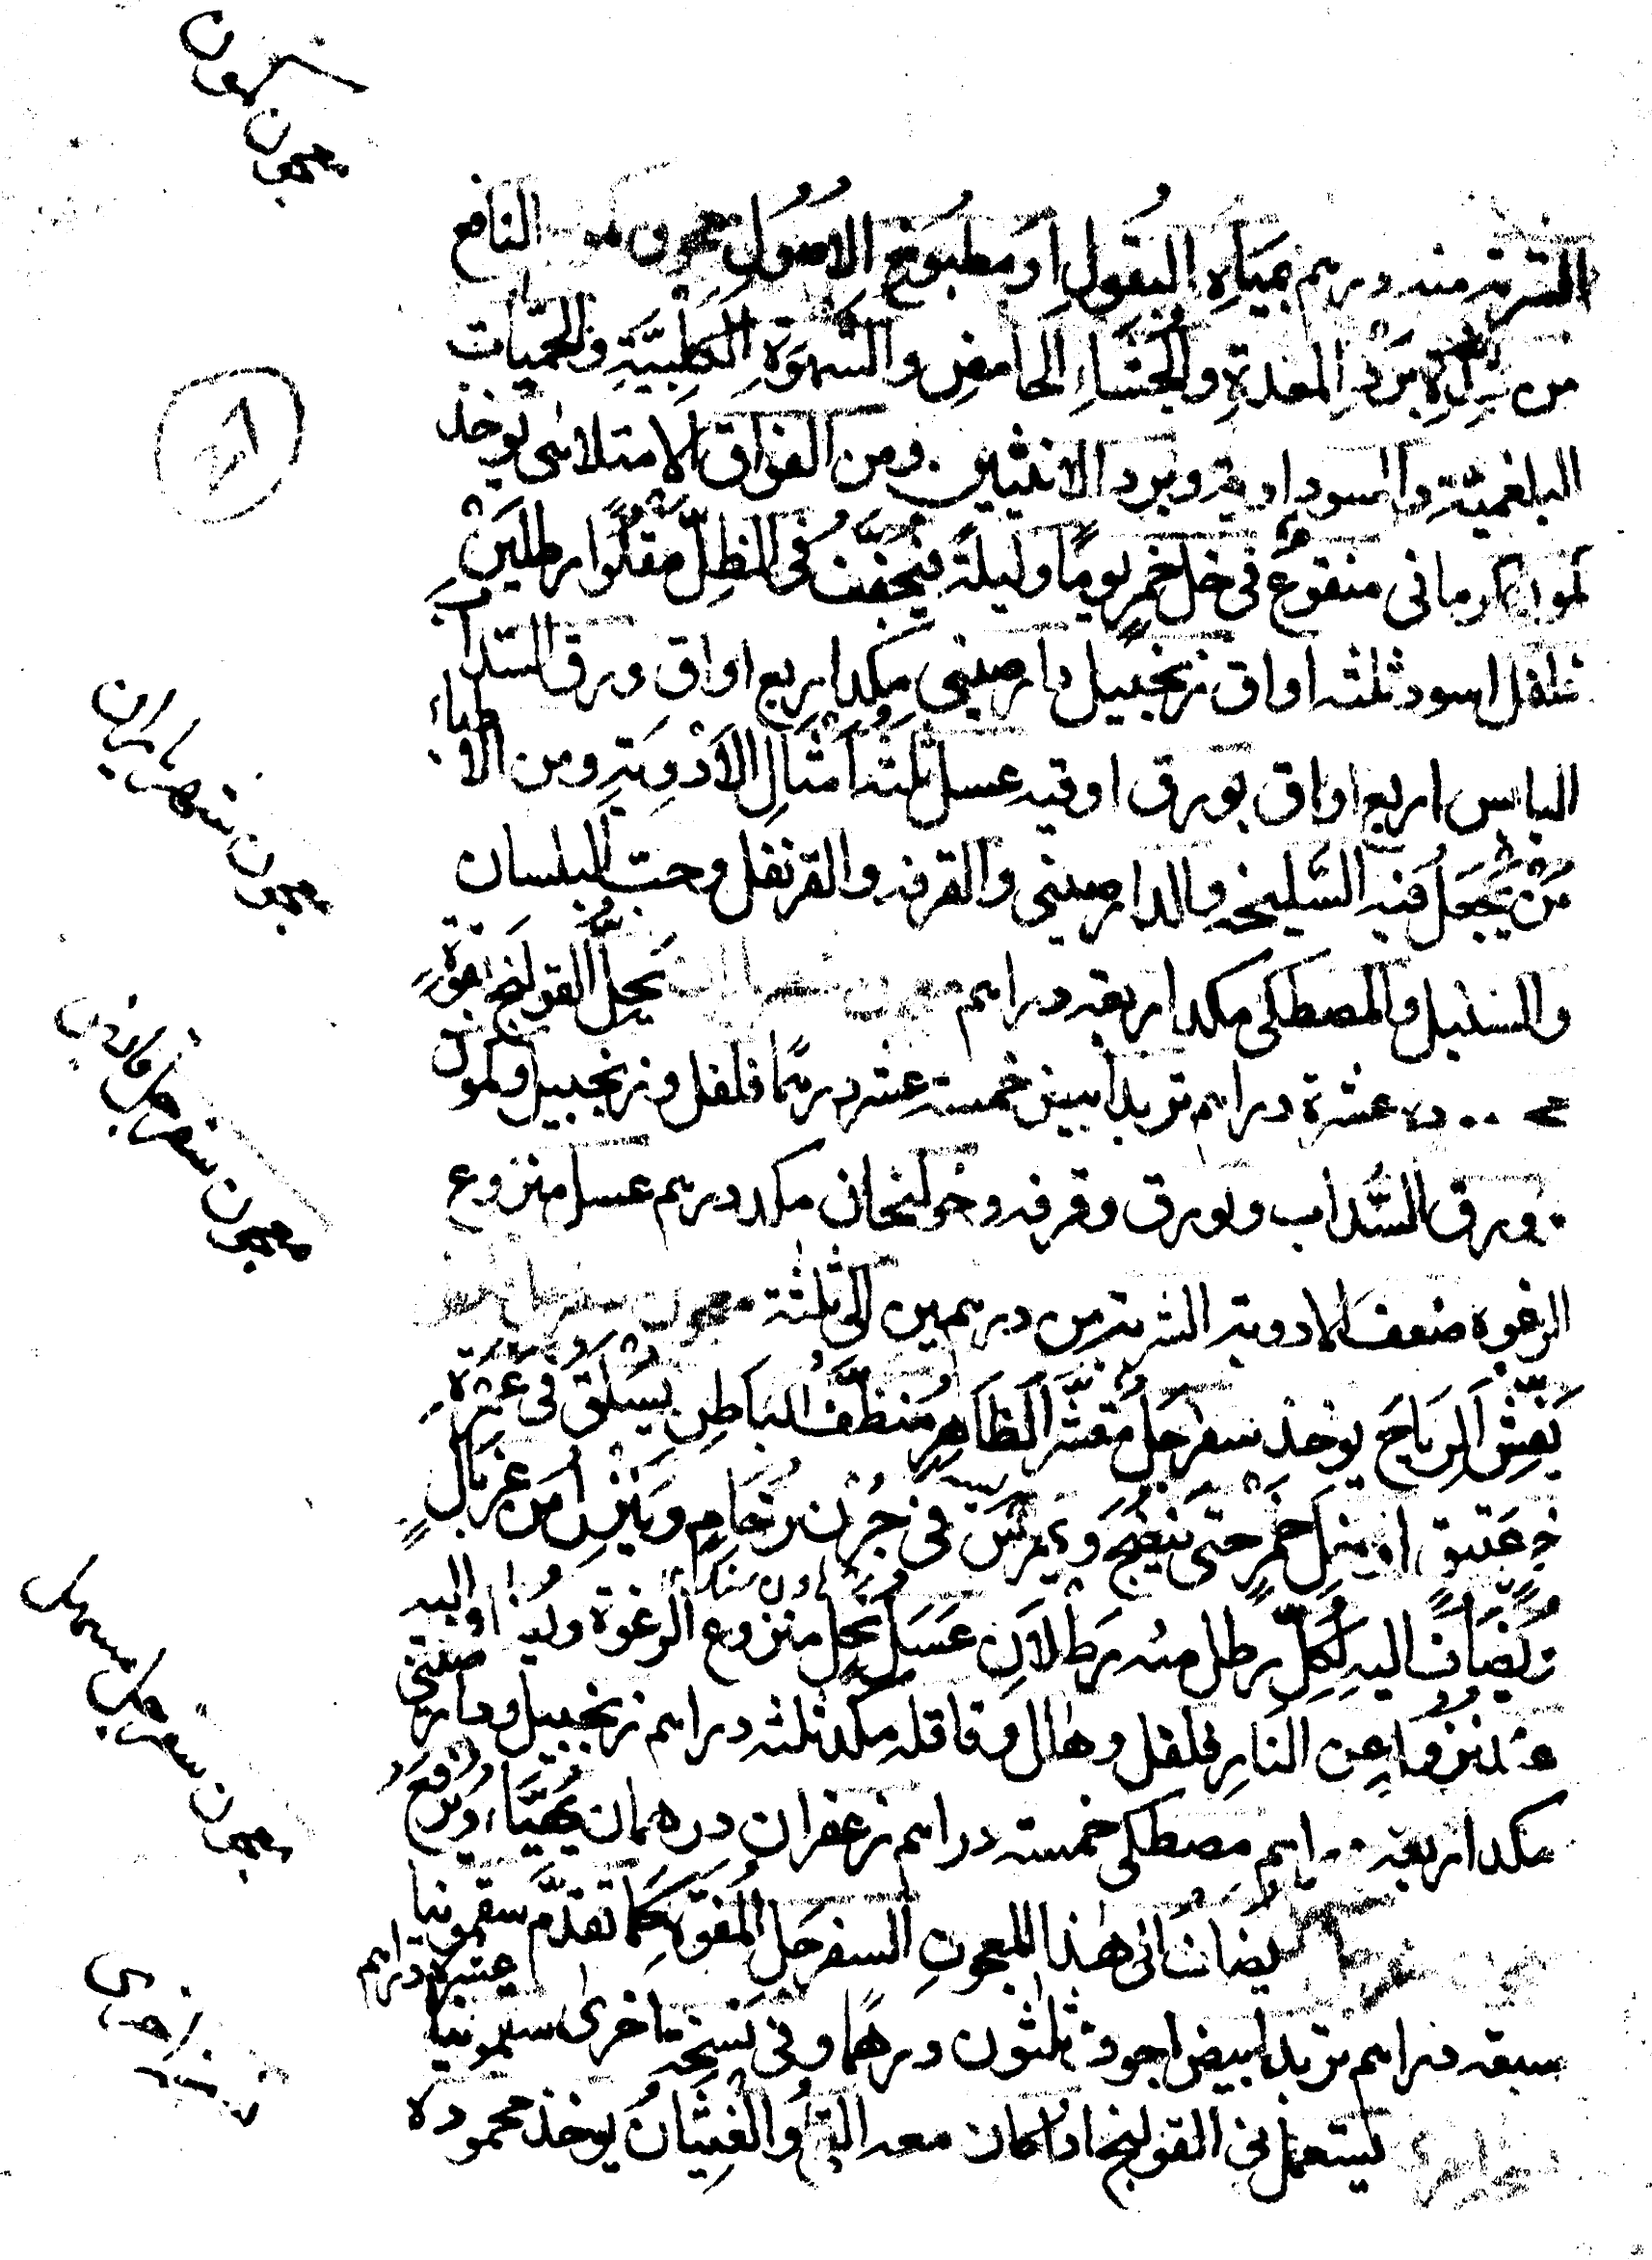 الشربة منه درهم بمياه البقول او مطبوخ الاصول معجون كمون النافع
من برد المعدة والجشاء الحامض والشهوة الكلبية والحميات
البلغمية والسوداوية وبرد الانثيين ومن الفواق الامتلائى يوخذ
كمون كرمانى منقوع فى خل خمر يوما وليلة فيجفف فى الظل مقلوا رطلين
فلفل اسود ثلثه اواق زنجبيل دارصينى مكد اربع اواق ورق السداب
اليابس اربع اواق بورق اوقيه عسل ثلثه امثال الادوية ومن الاطباء
من يجعل فيه السليخه والدارصينى والقرفه والقرنفل وحب البلسان
والسنبل والمصطكى مكد اربعه دراهم معجون يحل القولنج بقوة
عشرة دراهم تربد ابيض خمسة عشر درهما فلفل وزنجبيل وكمون
وورق السداب وبورق وقرفه وخولنجان مكد درهم عسل منزوع
الرغوه ضعف الادوية الشربة من درهمين الى ثلثة معجون سفرجل
يفش الرياح يوخذ سفرجل مقشر الظاهر منظف الباطن يسلق فى غمرة
خمر عتيق او خل خمر حتى ينضج ويمرس فى جرن رخام وينزل من غربال
هاون سنك
ويضاف اليه لكل رطل منه رطلان عسل نحل منزوع الرغوة واليه
عند نزوله عن النار فلفل وهال وقاقله مكد ثلثه دراهم زنجبيل ودارصينى
مكد اربعه دراهم مصطكى خمسة دراهم زعفران درهمان يهيا ويرفع
يضاف الى هذا المعجون السفرجل المفوه كما تقدم سقمونيا
سبعه دراهم تربد ابيض اجود ثلثون درهما وفى نسخة اخرى سقمونيا عشرة دراهم
يستعمل فى القولنج اذا كان معه القئ والغثيان يوخذ محموده
معجون
معجون
معجون سفرجل
معجون سفرجل مسهل
نسخة اخرى